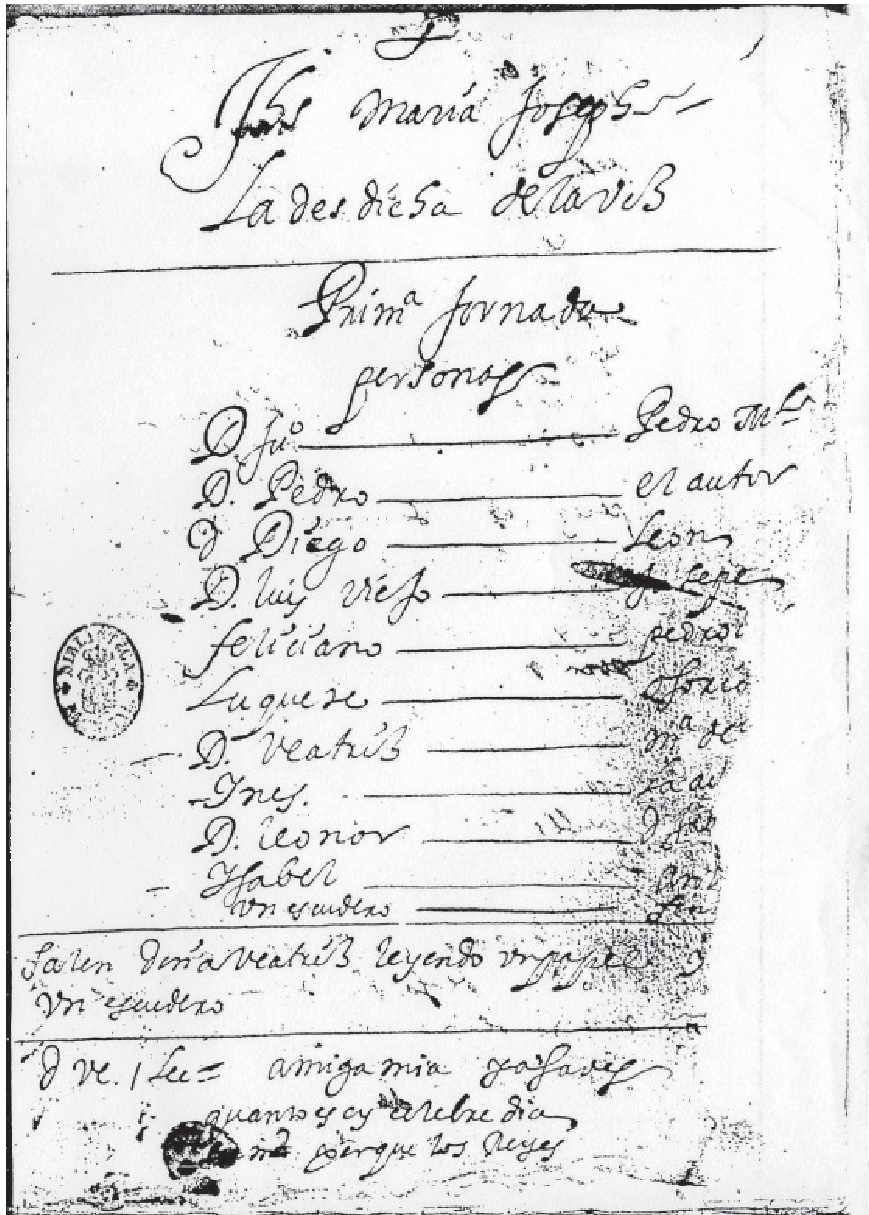 Jhs Maria Joseph
La desdicha de la voz
Primª Jornada
personas
D Juº Pedro Mls
D. Pedro el autor
d Diego Leon
D. luis viejo Pepe
feliciano pedro
Luquete osorio
D. veatriz mª de
Ines.
D. leonor
Ysabel
vn escudero
salen doña veatriz leyendo vn papel y
vn escudero
d ve. Lee= amiga mia ya saveys
quanto es oy celebre dia
porque los Reyes
BIBLIOTECA